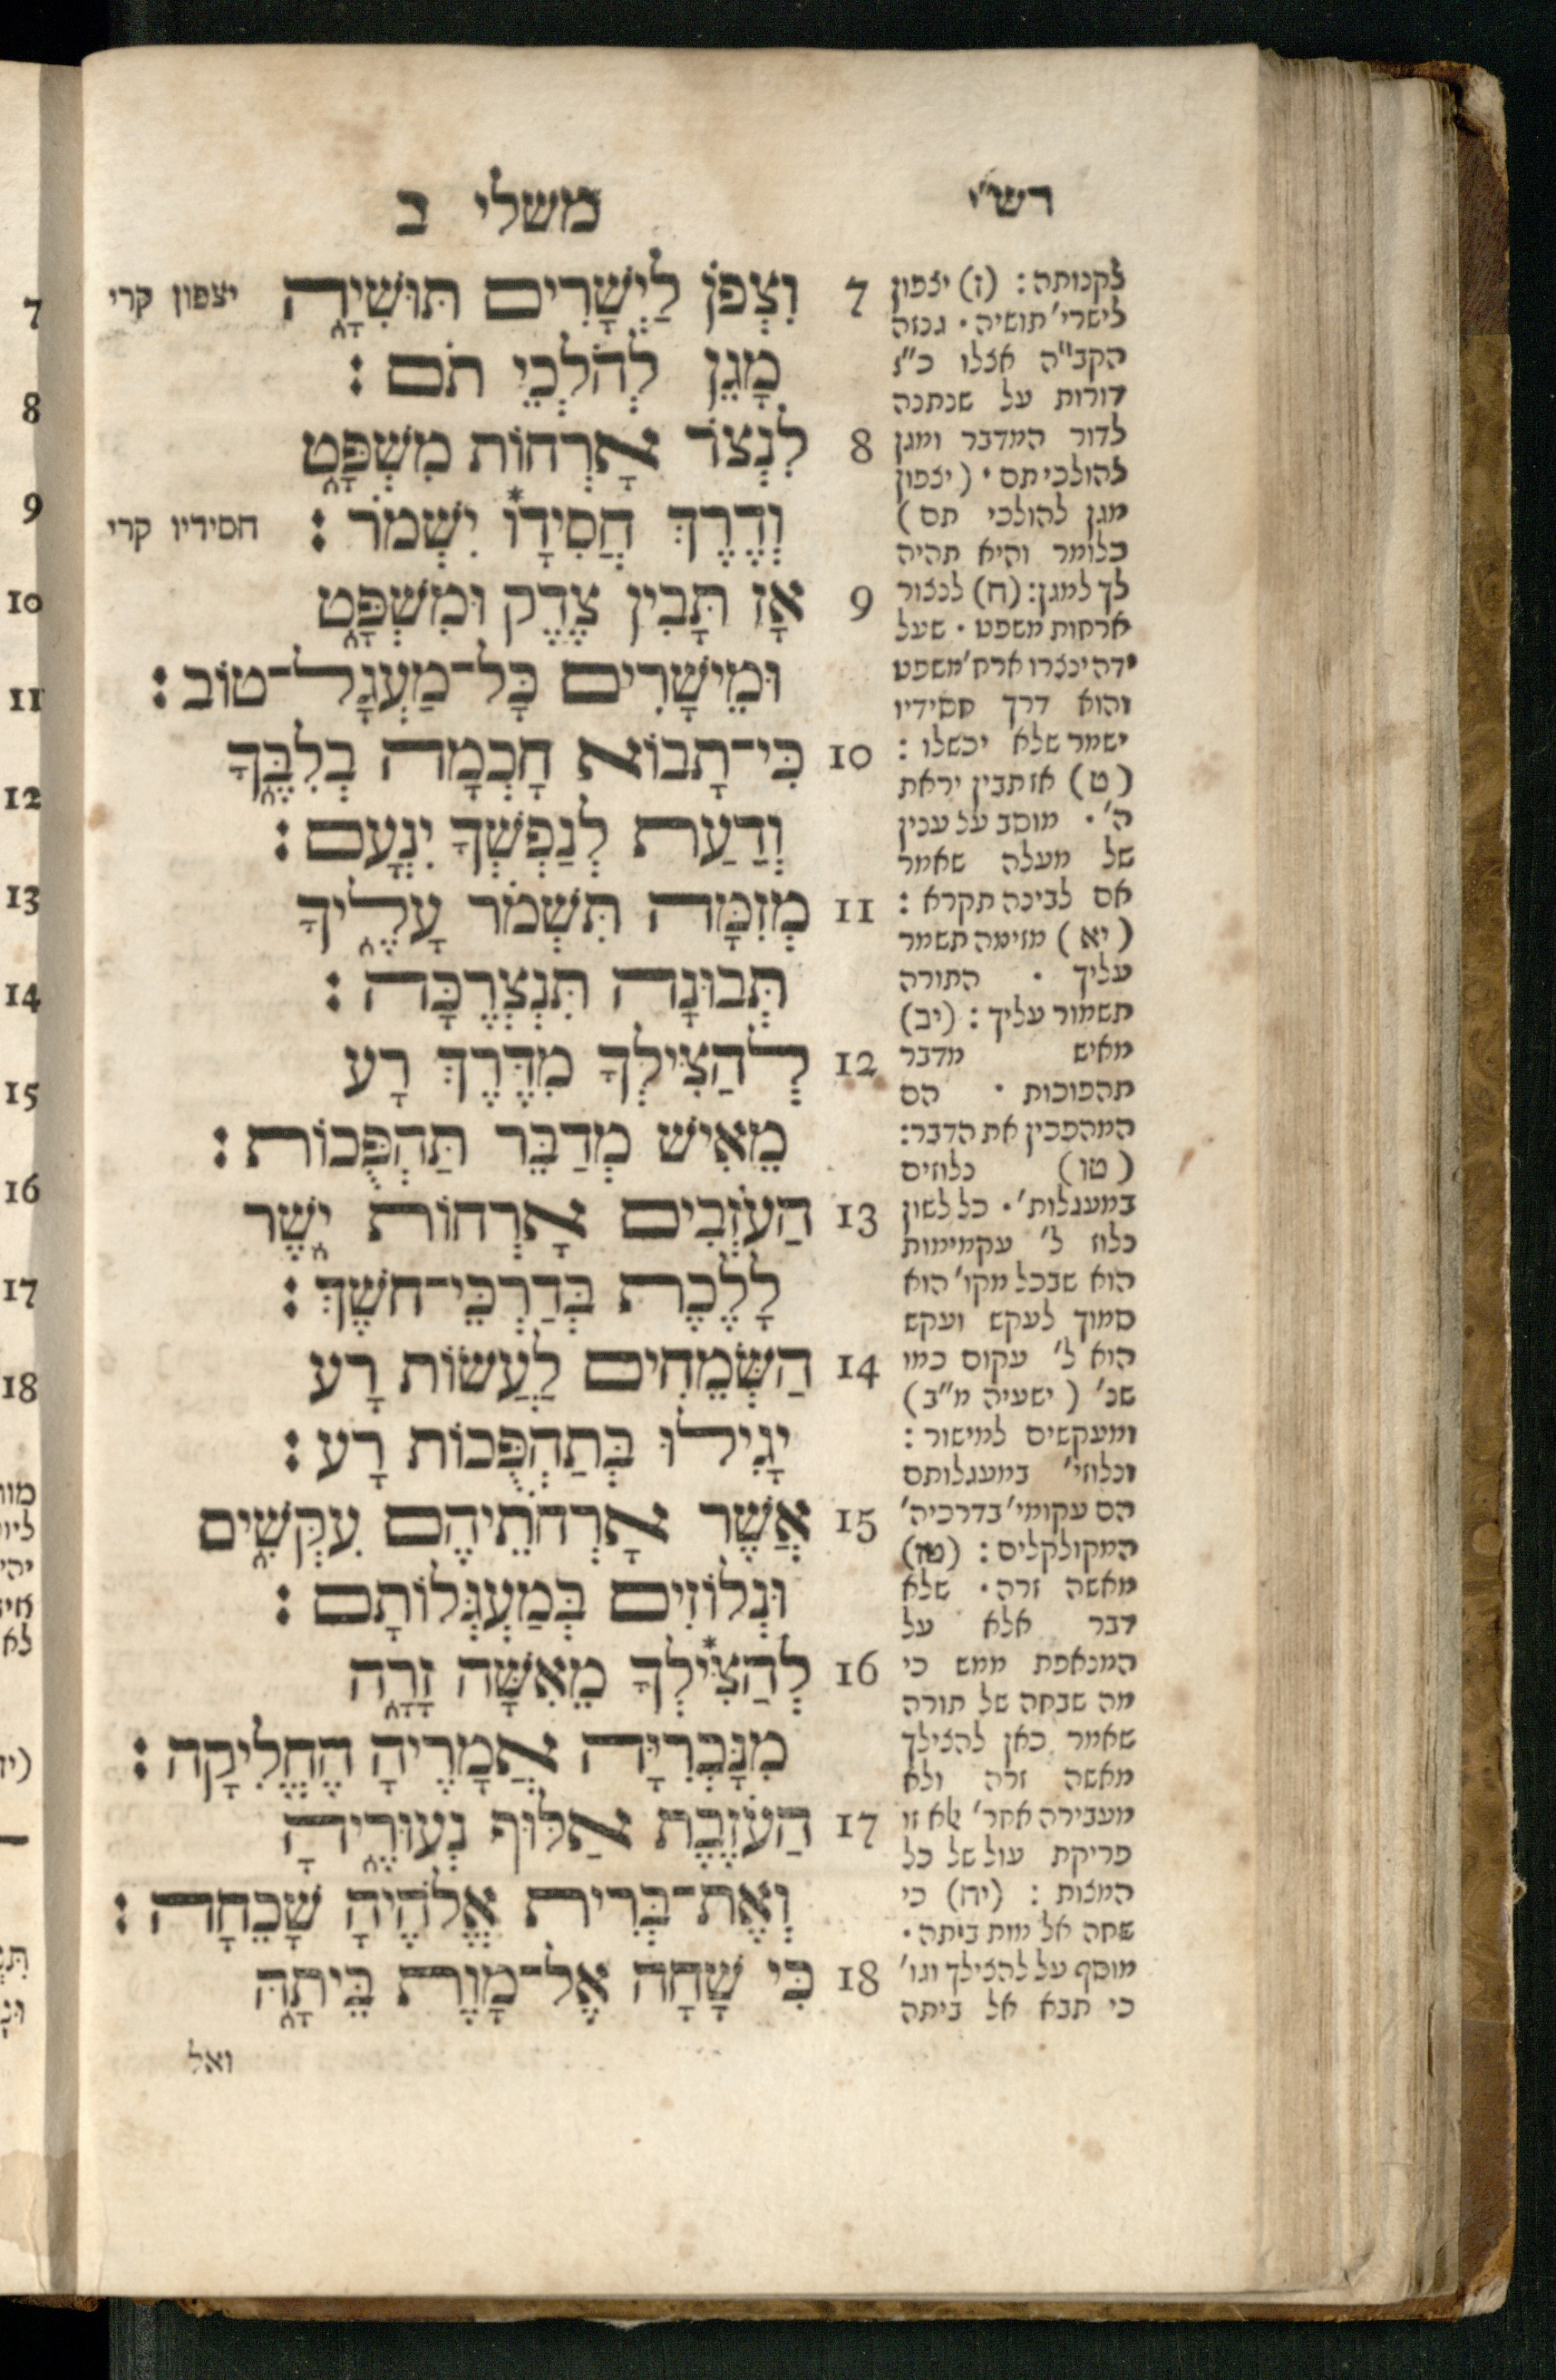 רש״י
משלי ב
7 וִצְפֹן לַיְשָׁרִים תּוּשִׁיָּה
יצפון קרי
מָגֵן לְהֹלְכֵי תֹם :
8 לִנְצֹר אָרְחוֹת מִשְׁפָּט
וְדֶרֶךְ חֲסִידָו֯ יִשְׁמֹר :
חסידיו קרי
9 אָז תָּבִין צֶדֶק וּמִשְׁפָּט
וּמֵישָׁרִים כָּל־מַעְגָּל־טוֹב :
10 כִּי־תָבוֹא חָכְמָה בְלִבֶּךָ
וְדַעַת לְנַפְשְׁךָ יִנְעָם :
11 מְזִמָּה תִּשְׁמֹר עָלֶיךָ
תְּבוּנָה תִּנְצְרֶכָּה :
12 לְהַצִּילְךָ מִדֶּרֶךְ רָע
מֵאִישׁ מְדַבֵּר תַּהְפֻּכוֹת :
13 הַעֹזְבִים אָרְחוֹת יֹשֶׁר
לָלֶכֶת בְּדַרְכֵי־חֹשֶׁךְ :
14 הַשְּׂמֵחִים לַעֲשׂוֹת רָע
יָגִילוּ בְּתַהְפֻּכוֹת רָע :
15 אֲשֶׁר אָרְחֹתֵיהֶם עִקְּשִׁים
וּנְלוֹזִים בְּמַעְגְּלוֹתָם :
16 לְהַצִּילְךָ מֵאִשָּׁה זָרָה
מִנָּכְרִיָּה אֲמָרֶיהָ הֶחֱלִיקָה :
17 הַעֹזֶבֶת אַלּוּף נְעוּרֶיהָ
וְאֶת־בְּרִית אֱלֹהֶיהָ שָׁכֵחָה :
18 כִּי שָׁחָה אֶל־מָוֶת בֵּיתָהּ
ואל
לקנותה : (ז) יצפון
לישרי׳ תושיה • גנזה
הקב״ה אצלו כ״ו
דורות על שנתנה
לדור המדבר ומגן
להולכי תם • (יצפון
מגן להולכי תם)
כלומר והיא תהיה
לך למגן : (ח) לנצור
ארחות משפט • שעל
ידה ינצרו ארח׳ משפט
והוא דרך חסידיו
ישמר שלא יכשלו :
(ט) אז תבין יראת
ה׳ • מוסב על ענין
של מעלה שאמר
אם לבינה תקרא :
(יא) מזימה תשמר
עליך • התורה
תשמור עליך : (יב)
מאיש מדבר
תהפוכות • הם
המהפכין את הדבר :
(טו) נלוזים
במעגלות׳ • כל לשון
נלוז ל׳ עקמימות
הוא שבכל מקו׳ הוא
סמוך לעקש ועקש
הוא ל׳ עקום כמו
שנ׳ (ישעיה מ״ב)
ומעקשים למישור :
ונלוזי׳ במעגלותם
הם עקומי׳ בדרכיה׳
המקולקלים : (טז)
מאשה זרה • שלא
דבר אלא על
המנאפת ממש כי
מה שבחה של תורה
שאמר כאן להצילך
מאשה זרה ולא
מעבירה אחר׳ אלא זו
פריקת עול של כל
המצות : (יח) כי
שחה אל מות ביתה •
מוסף על להצילך וגו׳
כי תבא אל ביתה
7
8
9
10
11
12
13
14
15
16
17
18